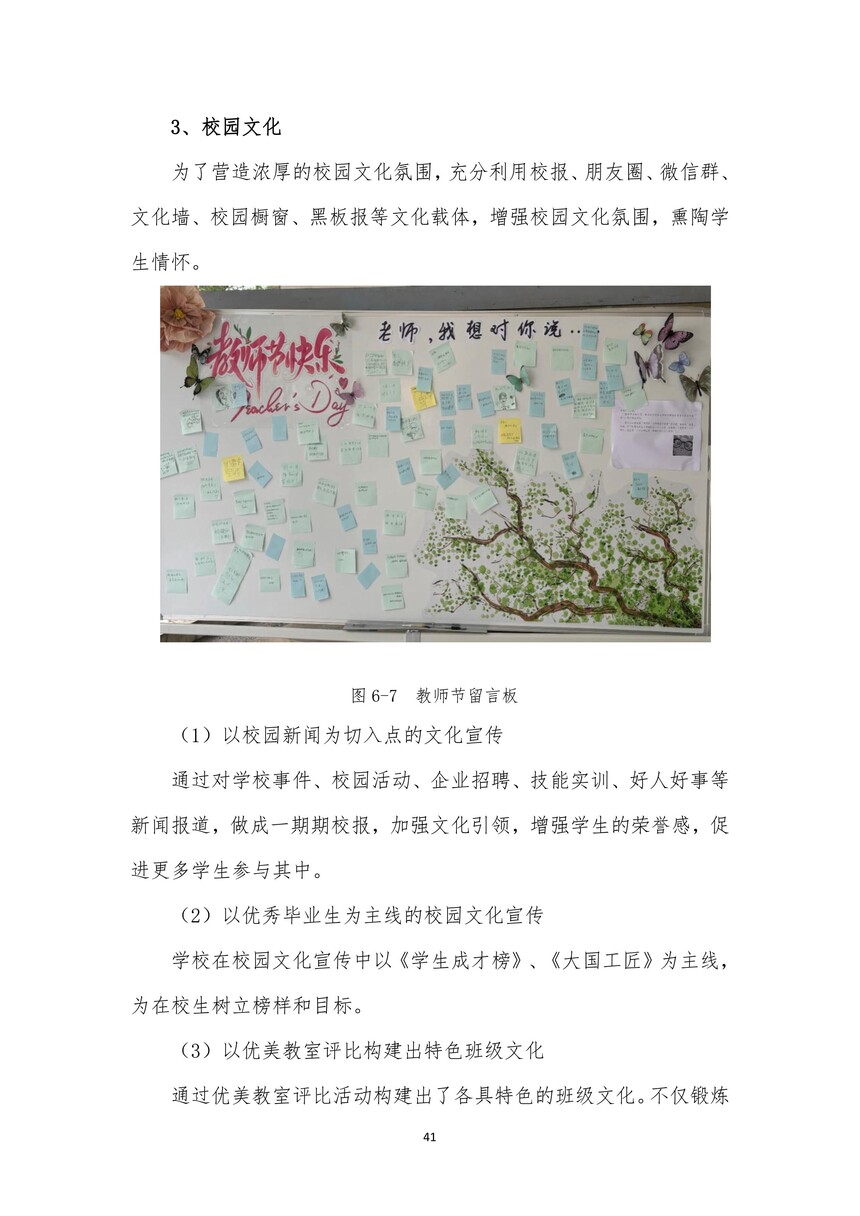 3、校园文化
为了营造浓厚的校园文化氛围，充分利用校报、朋友圈、微信群、
文化墙、校园橱窗、黑板报等文化载体，增强校园文化氛围，熏陶学
生情怀。
教师节快乐
Teacher's Day
老师,我想对你说……
图 6-7 教师节留言板
（1）以校园新闻为切入点的文化宣传
通过对学校事件、校园活动、企业招聘、技能实训、好人好事等
新闻报道，做成一期期校报，加强文化引领，增强学生的荣誉感，促
进更多学生参与其中。
（2）以优秀毕业生为主线的校园文化宣传
学校在校园文化宣传中以《学生成才榜》、《大国工匠》为主线，
为在校生树立榜样和目标。
（3）以优美教室评比构建出特色班级文化
通过优美教室评比活动构建出了各具特色的班级文化。不仅锻炼
41